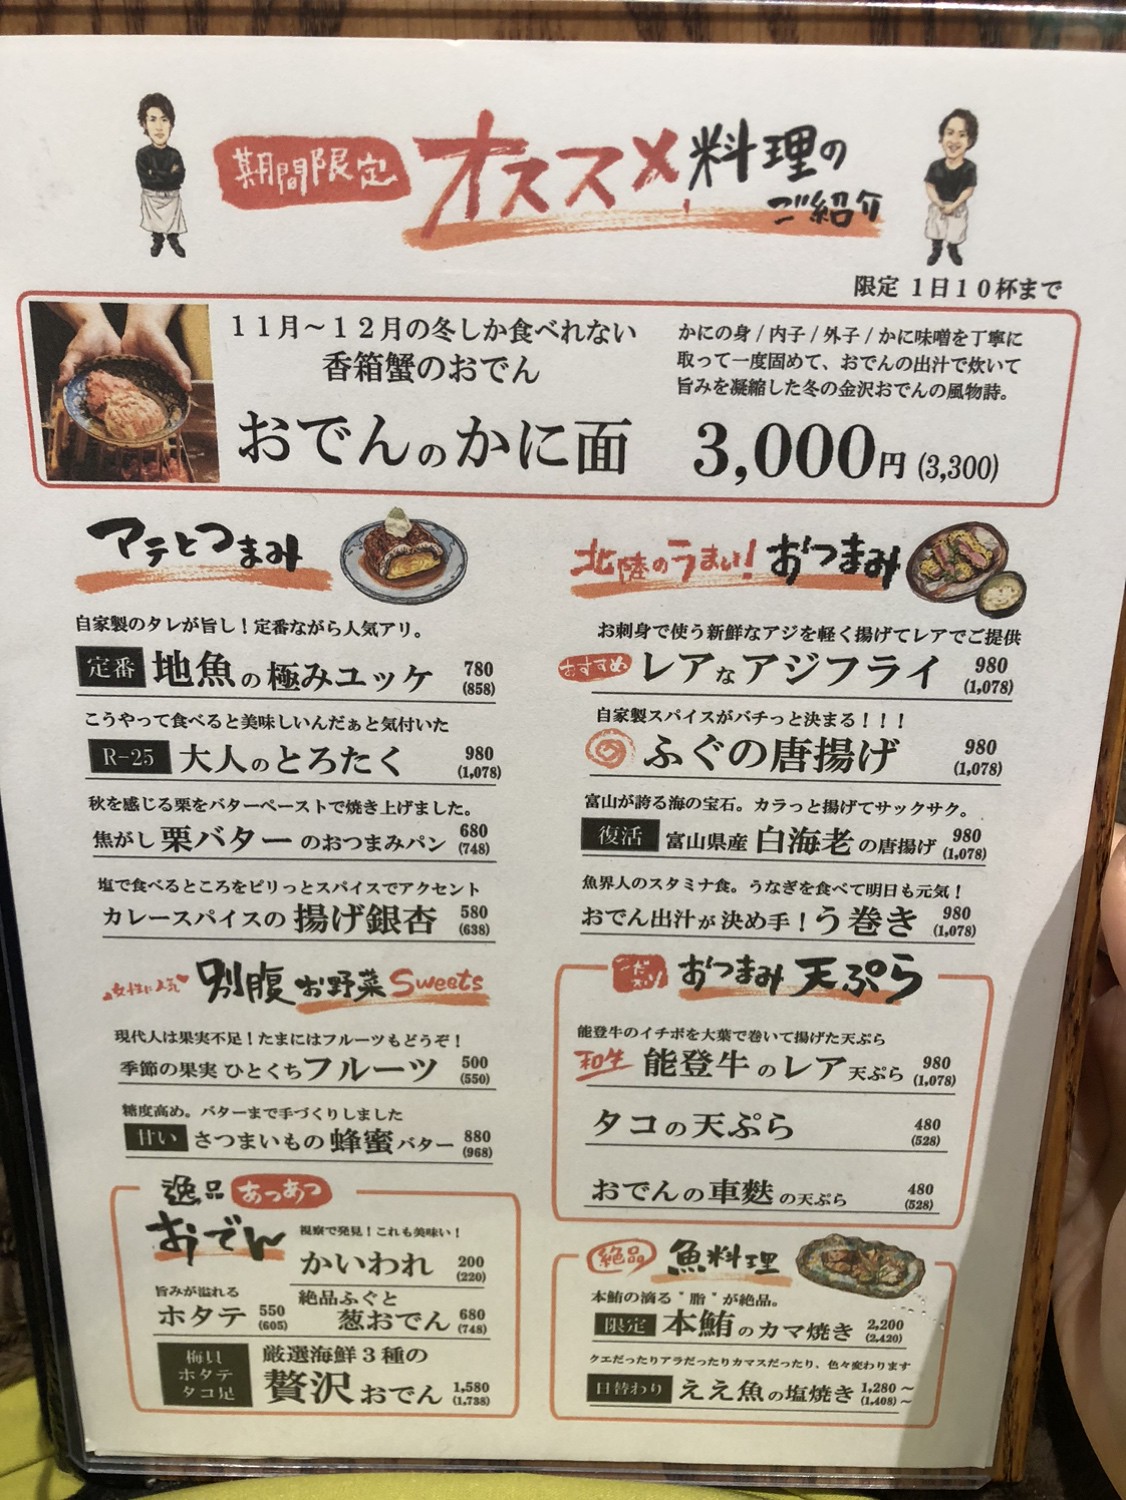 期間限定 オススメ料理の
ご紹介
限定 1日10杯まで
11月～12月の冬しか食べれない
香箱蟹のおでん
かにの身/内子/外子/かに味噌を丁寧に
取って一度固めて、おでんの出汁で炊いて
旨みを凝縮した冬の金沢おでんの風物詩。
おでんのかに面 3,000円(3,300)
アテとつまみ
自家製のタレが旨し！定番ながら人気アリ。
定番 地魚の極みユッケ 780
(858)
こうやって食べると美味しいんだぁと気付いた
R-25 大人のとろたく 980
(1,078)
秋を感じる栗をバターペーストで焼き上げました。
焦がし栗バターのおつまみパン 680
(748)
塩で食べるところをピリっとスパイスでアクセント
カレースパイスの揚げ銀杏 580
(638)
北陸のうまい！おつまみ
お刺身で使う新鮮なアジを軽く揚げてレアでご提供
おすすめ レアなアジフライ 980
(1,078)
自家製スパイスがバチっと決まる！！！
ふぐの唐揚げ 980
(1,078)
富山が誇る海の宝石。カラっと揚げてサックサク。
復活 富山県産 白海老の唐揚げ 980
(1,078)
魚界人のスタミナ食。うなぎを食べて明日も元気！
おでん出汁が決め手！う巻き 980
(1,078)
女性に人気 別腹お野菜Sweets
現代人は果実不足！たまにはフルーツもどうぞ！
季節の果実 ひとくちフルーツ 500
(550)
糖度高め。バターまで手づくりしました
甘い さつまいもの蜂蜜バター 880
(968)
おつまみ天ぷら
能登牛のイチボを大葉で巻いて揚げた天ぷら
和牛 能登牛のレア天ぷら 980
(1,078)
タコの天ぷら 480
(528)
おでんの車麩の天ぷら 480
(528)
逸品 あつあつ
おでん
視察で発見！これも美味い！
かいわれ 200
(220)
旨みが溢れる
ホタテ 550
(605)
絶品ふぐと
葱おでん 680
(748)
梅貝
ホタテ
タコ足
厳選海鮮3種の
贅沢おでん 1,580
(1,738)
絶品 魚料理
本鮪の滴る"脂"が絶品。
限定 本鮪のカマ焼き 2,200
(2,420)
クエだったりアラだったりカマスだったり、色々変わります
日替わり ええ魚の塩焼き 1,280～
(1,408)～